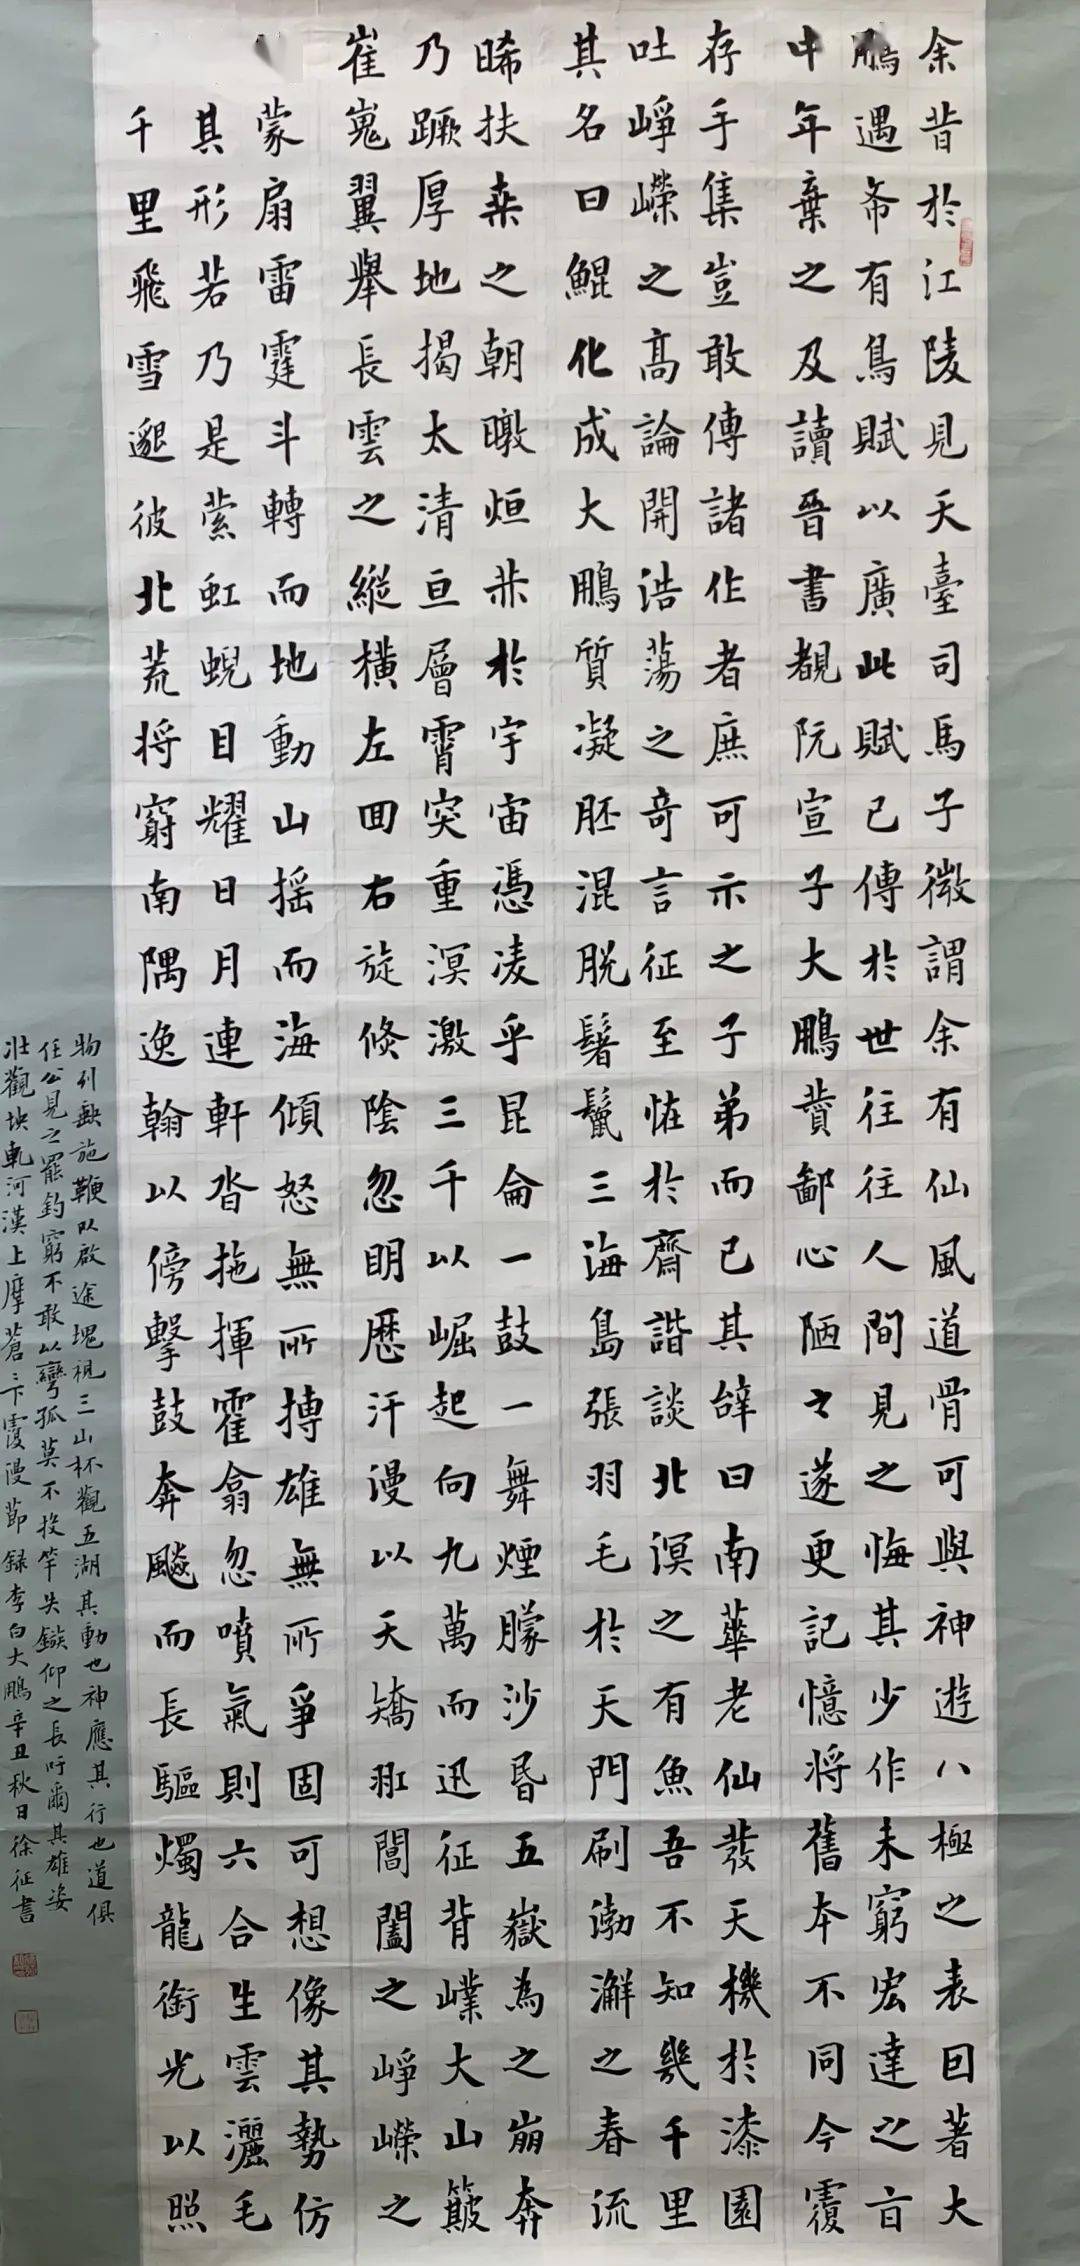 余昔於江陵見天臺司馬子微謂余有仙風道骨可與神遊八極之表因著大
鵬遇希有鳥賦以廣此賦已傳於世往往人間見之悔其少作未窮宏達之旨
中年棄之及讀晉書覩阮宣子大鵬賛鄙心陋之遂更記憶將舊本不同今覆
存手集豈敢傳諸作者庶可示之子弟而已其辭曰南華老仙發天機於漆園
吐崢嶸之高論開浩蕩之奇言征至怪於齊諧談北溟之有魚吾不知幾千里
其名曰鯤化成大鵬質凝胚混脫鬐鬣三海島張羽毛於天門刷渤澥之春流
晞扶桑之朝暾烜赫於宇宙憑凌乎昆侖一鼓一舞煙朦沙昏五嶽為之崩奔
乃蹶厚地揭太清亘層霄突重溟激三千以崛起向九萬而迅征背嶪大山簸
崔嵬翼舉長雲之縱橫左回右旋倏陰忽明歷汗漫以夭矯羾閶闔之崢嶸之
蒙扇雷霆斗轉而地動山搖而海傾怒無所搏雄無所爭固可想像其勢仿
其形若乃是縈虹蜺目耀日月連軒沓拖揮霍翕忽噴氣則六合生雲灑毛
千里飛雪邈彼北荒將窮南隅逸翰以傍擊鼓奔飇而長驅燭龍銜光以照
物列缺施鞭以啟途塊視三山杯觀五湖其動也神應其行也道俱
任公見之罷釣窮不敢以彎弧莫不投竿失鏃仰之長吁爾其雄姿
壯觀坱軋河漢上摩蒼〻下覆漫節錄李白大鵬辛丑秋日徐征書